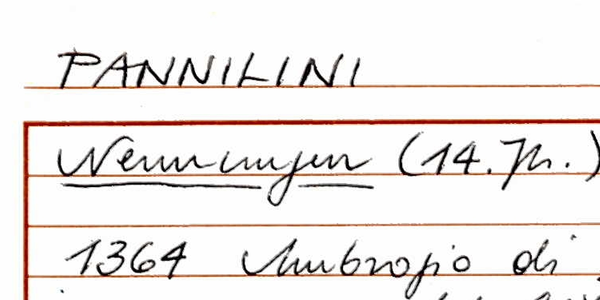 PANNILINI
Nennungen (14. Jh.)
1364 Ambrogio di